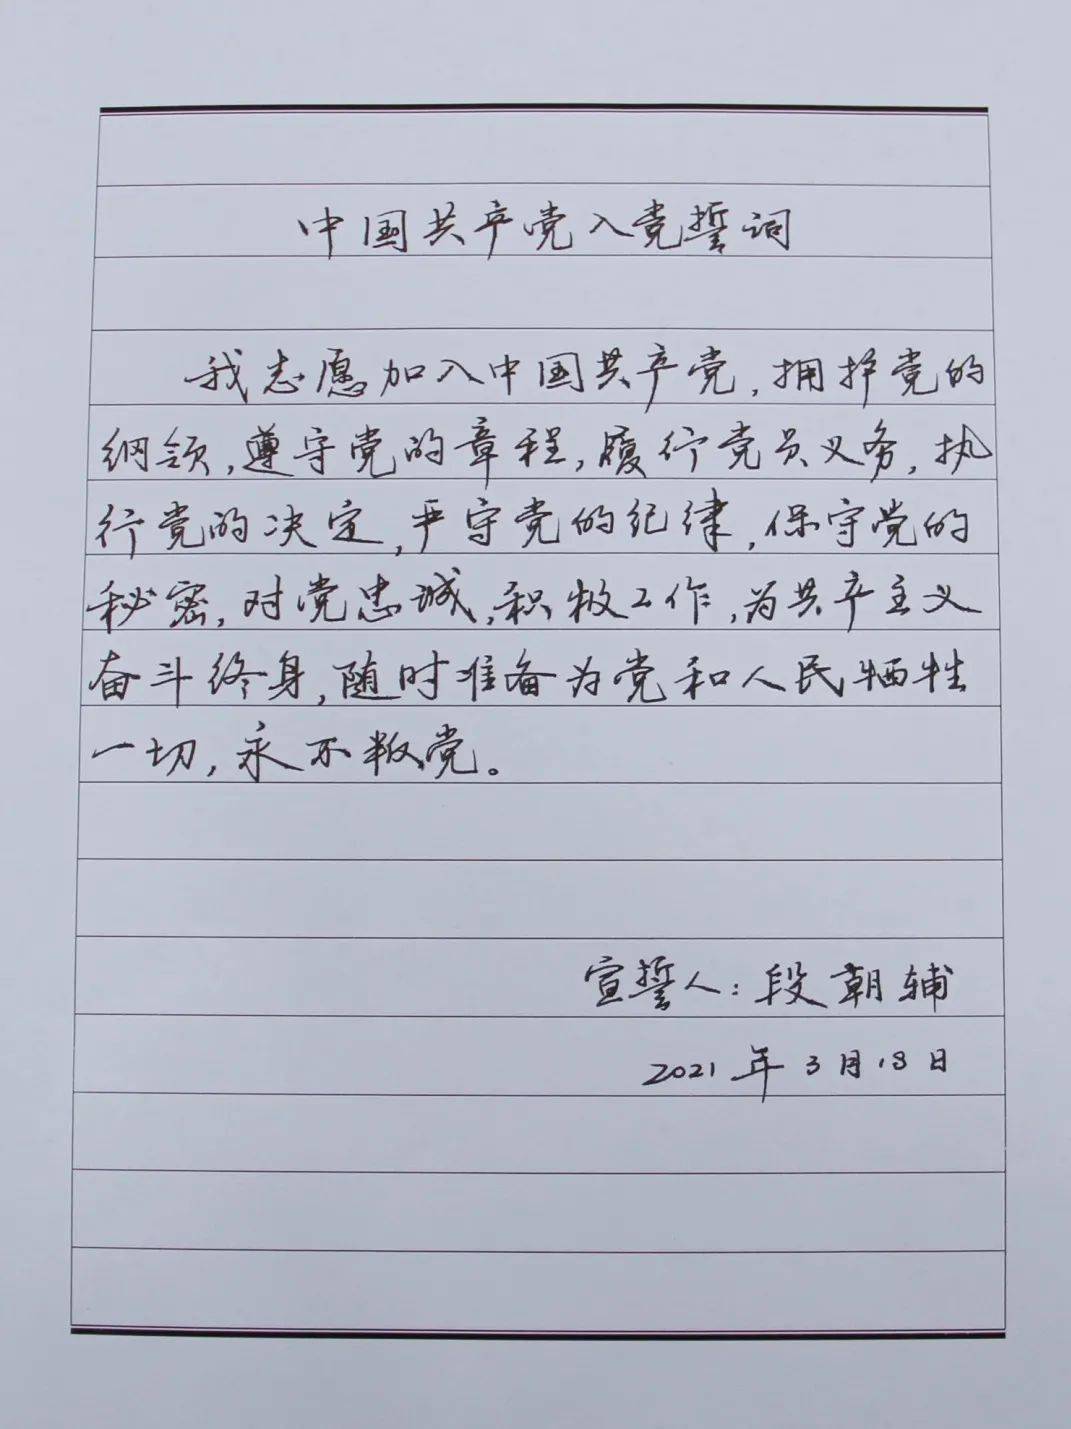 中国共产党入党誓词
我志愿加入中国共产党，拥护党的
纲领，遵守党的章程，履行党员义务，执
行党的决定，严守党的纪律，保守党的
秘密，对党忠诚，积极工作，为共产主义
奋斗终身，随时准备为党和人民牺牲
一切，永不叛党。
宣誓人：段朝辅
2021年3月18日